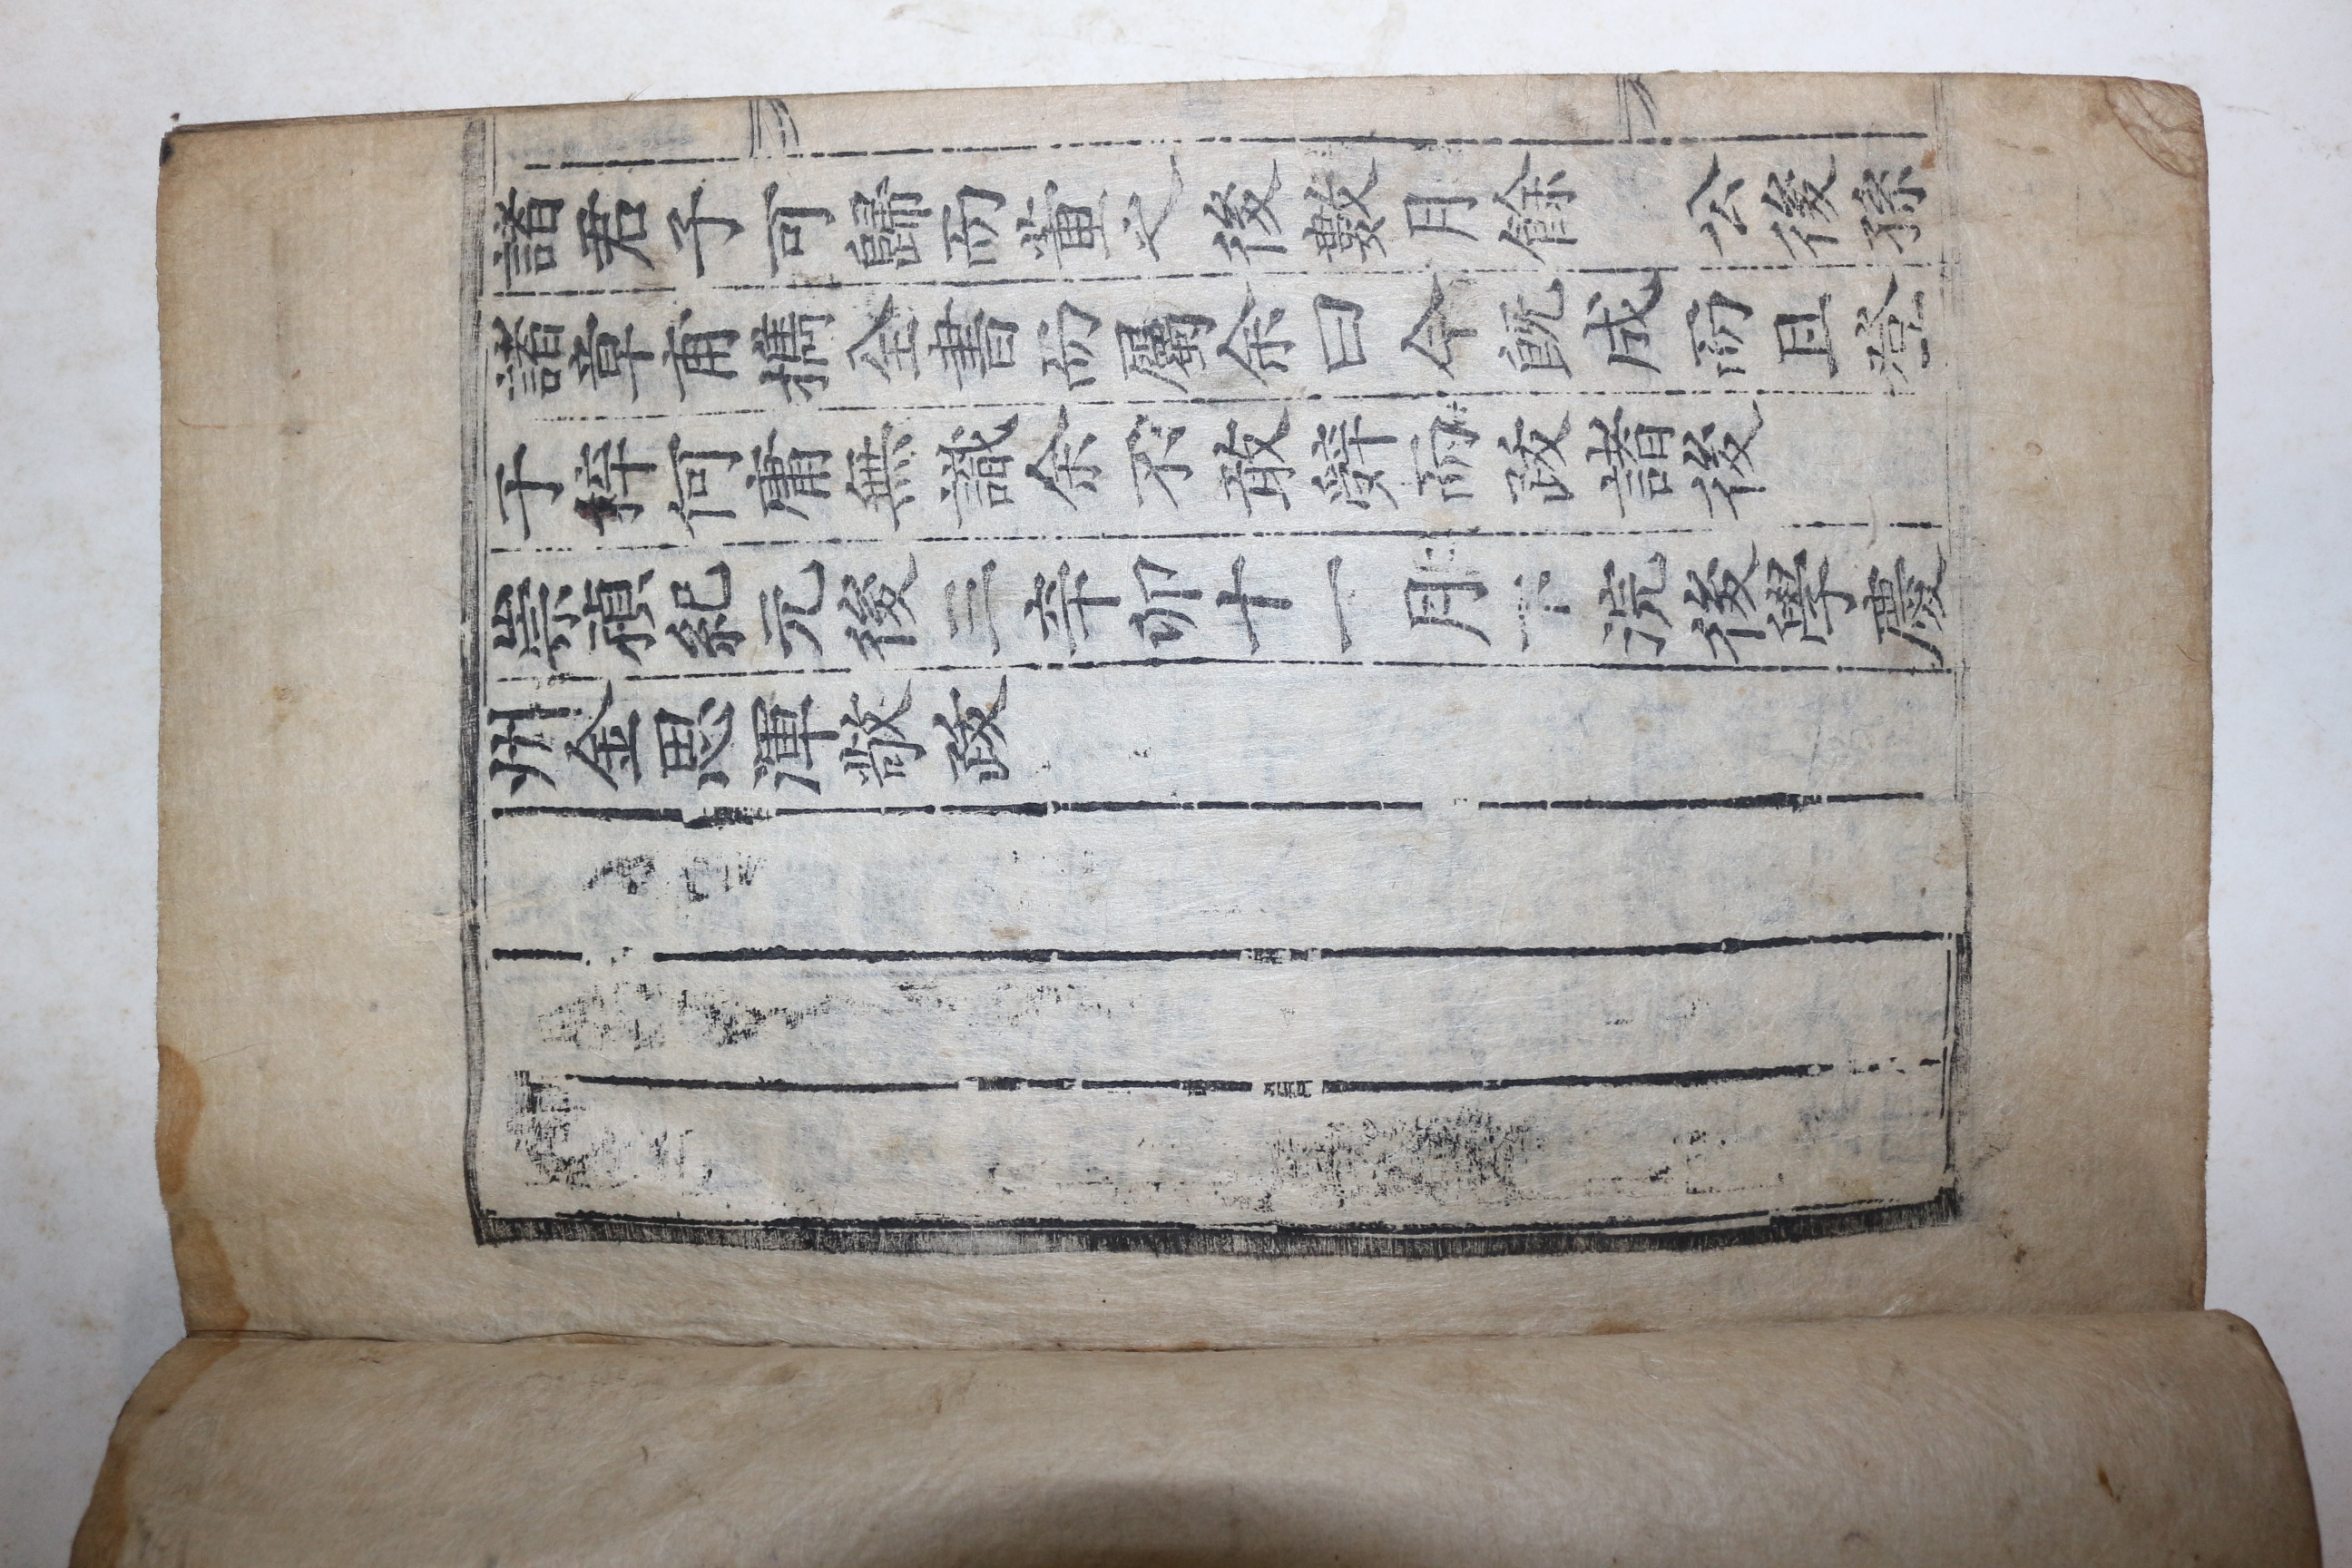 諸君子可歸而董之後數月餘 公後孫
諸章甫携全書而屬余曰今旣成而且登
于梓何庸無識余不敢辭而跋諸後
崇禎紀元後三辛卯十一月下浣後學慶
州金思渾敬跋